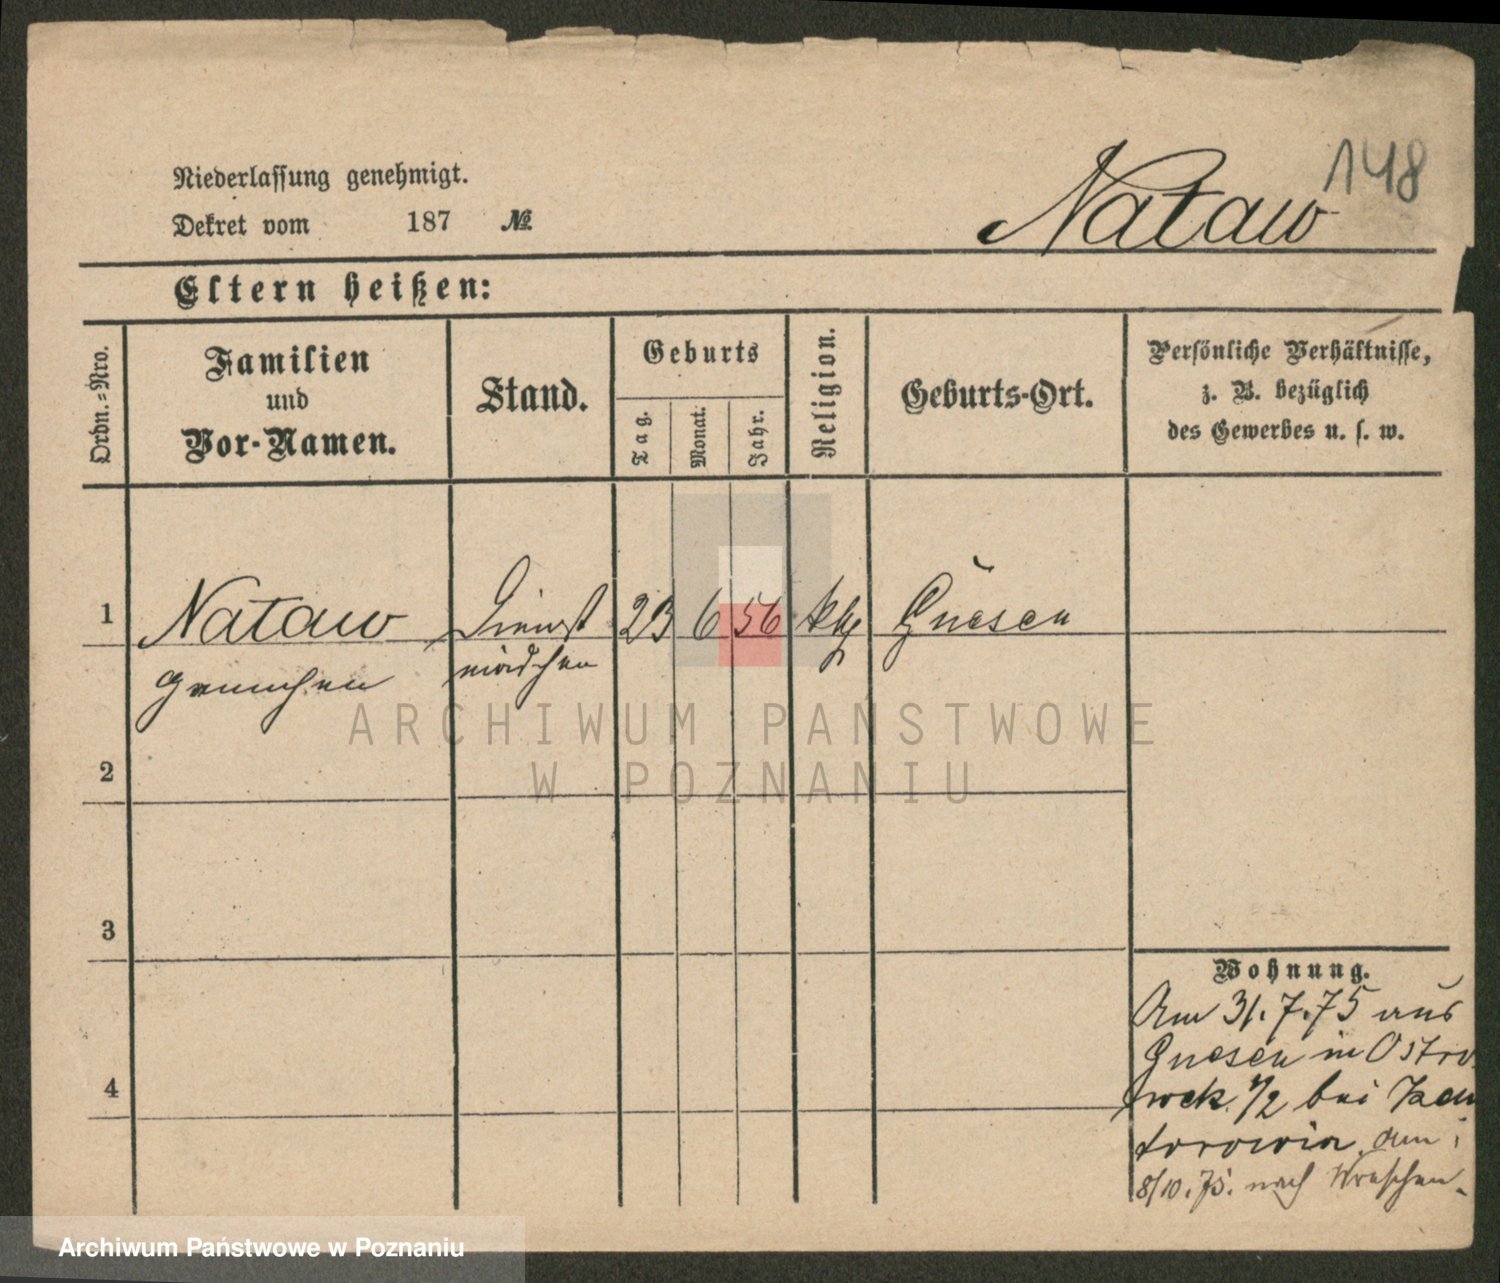 148
Niederlassung genehmigt.
Dekret vom 187 №
Nataw
Eltern heißen:
Ordn.=Nro.
Familien
und
Vor-Namen.
Stand.
Geburts
Tag.
Monat.
Jahr.
Religion.
Geburts-Ort.
Persönliche Verhältnisse,
z. B. bezüglich
des Gewerbes u. s. w.
1 Nataw Dienst 23 6 56 kth Gnesen
mädchen
2
3
4
Wohnung.
Am 31. 7. 75 aus
Gnesen in Ostro
wek 1/2 bei Kan
torowicz. am
8/10. 75. nach Wreschen.
ARCHIWUM PAŃSTWOWE
W POZNANIU
Archiwum Państwowe w Poznaniu